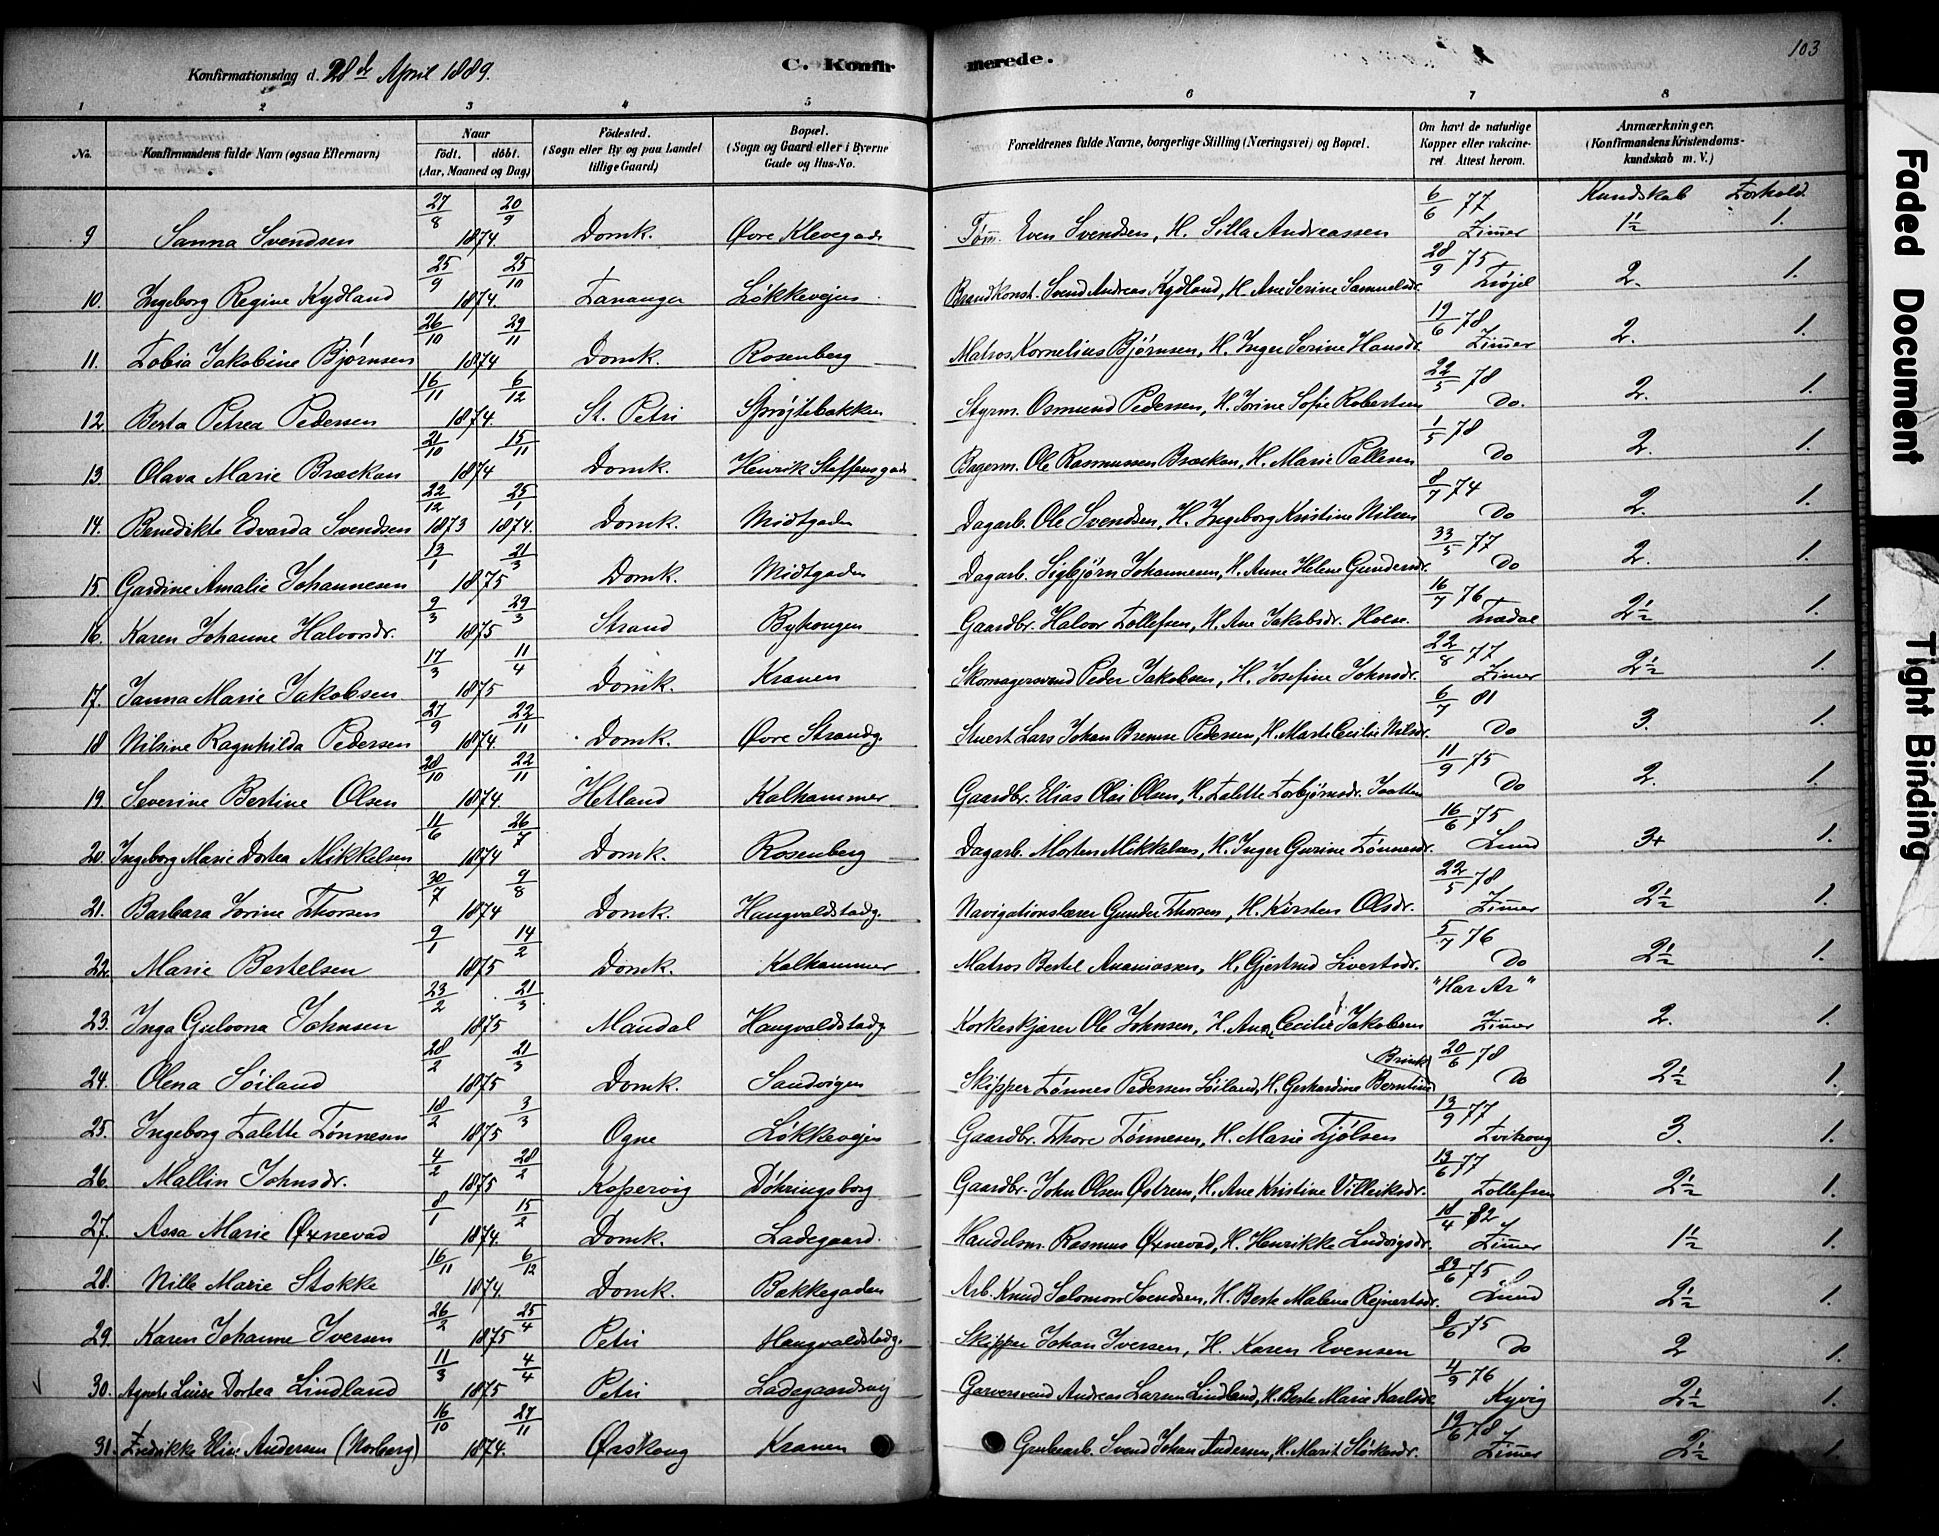 Konfirmationsdag d. 28de April 1889. C. Konfirmerede. 103
1 2 3 4 5 6 7 8
No. Konfirmandens fulde Navn (ogsaa Efternavn) Naar født. døbt. (Aar, Maaned og Dag) Fødested. (Sogn eller By og paa Landet tillige Gaard) Bopæl. (Sogn og Gaard eller i Byerne Gade og Hus-No. Forældrenes fulde Navne, borgerlige Stilling (Næringsvei) og Bopæl. Om havt de naturlige Kopper eller vakcineret Attest herom. Anmærkninger. (Konfirmandens Kristendomskundskab m. V.)
Kundskab Forhold
9 Sanna Svendsen 27/8 20/9 1874 Domk. Øvre Klevegade Tøm. Even Svendsen, H. Silla Andreassen 6/6 77 Zimer 1½ 1.
10. Ingeborg Regine Kydland 25/9 25/10 1874. Tananger Løkkevejen Brandkonst. Svend Andreas Kydland, H. Ane Serine Samuelsdr. 28/9 75 Trøjel 2. 1.
11. Tobia Jakobine Bjørnsen 26/10 29/11 1874 Domk. Rosenberg Matros Kornelius Bjørnsen, H. Inger Serine Hansdr. 19/6 78 Zimer 2. 1.
12. Berta Petrea Pedersen 16/11 6/12 1874. St. Petri Sprøjtebakken Styrm. Osmund Pedersen, H. Jorine Sofie Robertsen 22/5 78 Do. 2. 1.
13. Olava Marie Brækan 21/10 15/11 1874 Domk. Henrik Steffensgade Bagerm. Ole Rasmussen Brækan, H. Marie Pallesen 1/5 78 Do 2. 1.
14. Benedikte Edvarda Svendsen 22/12 1873 25/1 1874. Domk. Midtgaden Dagarb. Ole Svendsen, H. Ingeborg Kristine Nilsen 8/7 74 Do 2. 1.
15. Gardine Amalie Johannesen 13/1 21/3 1875 Domk. Midtgaden Dagarb. Sigbjørn Johannesen, H. Anne Helene Gundersdr. 33/5 77 Do 2. 1.
16. Karen Johanne Halvorsdr. 9/3 29/3 1875 Strand Byhaugen Gaardbr. Halvor Tollefsen, H. Ane Jakobsdr. Holen. 16/7 76 Tradal 2½ 1.
17. Janna Marie Jakobsen 17/3 11/4 1875 Domk. Kranen Skomagersvend Peder Jakobsen, H. Josefine Johnsdr. 22/8 77 Zimer 2½ 1.
18 Nilsine Ragnhilda Pedersen 27/9 22/11 1874. Domk. Øvre Strandg. Stuert Lars Johan Bremse Pedersen, H. Marte Cecilie Nilsdr. 6/7 81 Do 3. 1.
19. Severine Bertine Olsen 28/10 22/11 1874. Hetland Kalhammer Gaardbr. Elias Olai Olsen, H. Talette Torbjørnsdr. Jaatten 11/9 75 Do 2. 1.
20. Ingeborg Marie Dortea Mikkelsen 11/6 26/7 1874 Domk. Rosenberg Dagarb. Morten Mikkelsen, H. Inger Gurine Tønnesdr. 16/6 75 Lund 3+ 1.
21. Barbara Jorine Thorsen 30/7 9/8 1874 Domk. Haugvaldstadg. Navigationslærer Gunder Thorsen, H. Kirsten Olsdr. 22/5 78 Zimer 2½ 1.
22. Marie Bertelsen 9/1 14/2 1875 Domk. Kalhammer Matros Bertel Ananiassen, H. Gjertrud Sivertsdr. 5/7 76 Do 2½ 1.
23. Inga Gulvona Johnsen 23/2 21/3 1875 Mandal Haugvaldstadg Korkeskjærer Ole Johnsen, H. Ana Cecilie Jakobsen "Har Ar" Zimer 2. 1.
24. Olena Søiland 28/2 21/3 1875 Domk. Sandvigen Skipper Tønnes Pedersen Søiland, H. Gerhardine Berntine Brink 20/6 78 Do 2½ 1.
25. Ingeborg Talette Tønnesen 18/2 3/3 1875 Ogne Løkkevejen Gaardbr. Thore Tønnesen, H. Marie Fjølsen 13/9 77 3. 1.
26. Mallin Johnsdr. 4/2 28/2 1875 Kopervig Døhringsborg Gaardbr. John Olsen Østrem, H. Ane Kristine Villeiksdr. 13/6 77 Tollefsen 2½ 1.
27. Assa Marie Øxnevad 8/1 15/2 1874. Domk. Ladegaard. Handelsm. Rasmus Øxnevad, H. Henrikke Ludvigsdr. 18/4 82 Zimer 1½ 1.
28. Nille Marie Stokke 16/11 6/12 1874. Domk. Bakkegaden Arb. Knud Salomon Svendsen, H. Berte Malene Rejnertsdr. 29/6 75 Lund 2½ 1.
29. Karen Johanne Iversen 26/2 25/4 1875 Petri Haugvaldstadg. Skipper Johan Iversen, H. Karen Evensen 9/6 75 Do 2 1.
30. Agnete Luise Dortea Lindland 11/3 4/4 1875 Petri Ladegaardsvej Garversvend Andreas Larsen Lindland, H. Berte Marie Karlsdr. 4/9 76 Kyvig 2½ 1.
31. Fredrikke Elise Andersen (Norberg) 16/10 27/11 1874. Ørskoug Kranen Grubearb. Svend Johan Andersen, H. Marit Størkersdr. 19/6 78 Zimer 2½ 1.
Faded Document
Tight Binding